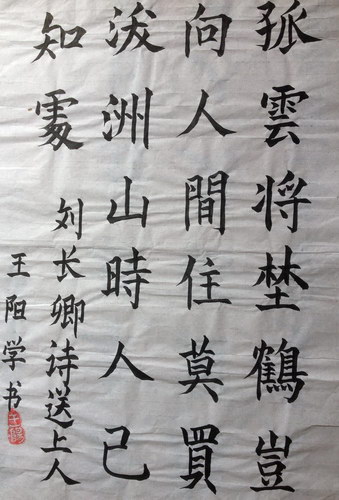 孤雲将埜鶴豈
向人間住莫買
沷洲山時人已
知處
刘长卿诗送上人
王阳学书